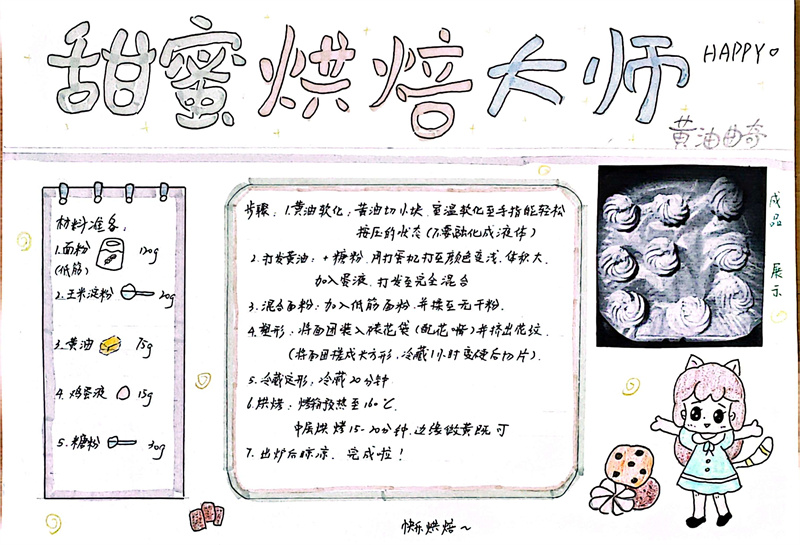 甜蜜烘焙大师
HAPPY
黄油曲奇
材料准备:
1.面粉 120g
(低筋)
2.玉米淀粉 20g
3.黄油 75g
4.鸡蛋液 15g
5.糖粉 30g
步骤:1.黄油软化:黄油切小块.室温软化至手指能轻松
按压的状态(不要融化成液体)
2.打发黄油:+糖粉.用打蛋机打至颜色变浅.体积大.
加入蛋液.打发至完全混合
3.混合面粉:加入低筋面粉.并揉至无干粉.
4.整形:将面团装入裱花袋(配花嘴)并挤出花纹.
(将面团搓成长方形,冷藏1小时变硬后切片).
5.冷藏定形:冷藏20分钟
6.烘烤:烤箱预热至160℃.
中层烘烤15-20分钟.边缘微黄既可
7.出炉后晾凉.完成啦!
成品展示
快乐烘焙~